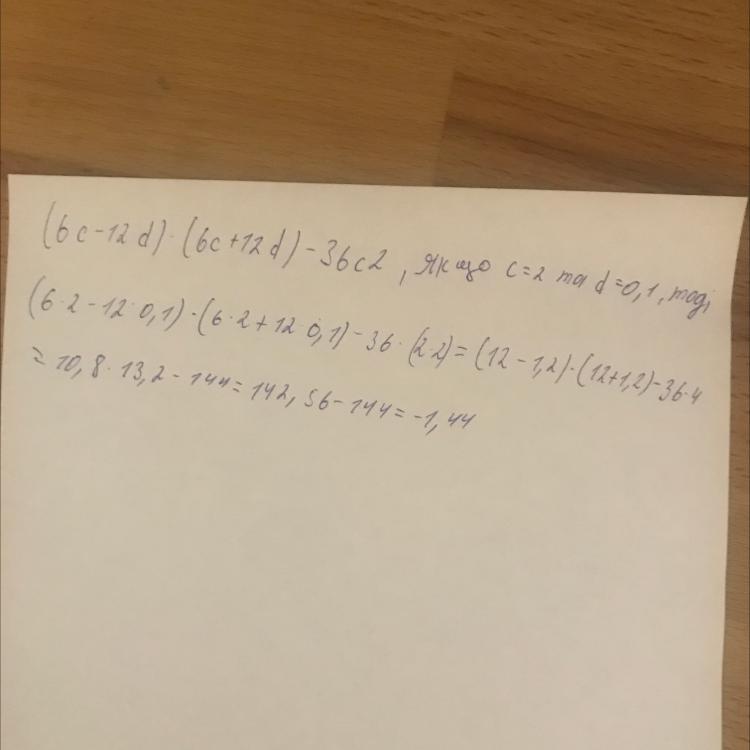 (6c-12d)·(6c+12d)-36c2, якщо c=2 та d=0,1, тоді
(6·2-12·0,1)·(6·2+12·0,1)-36·(2·2)=(12-1,2)·(12+1,2)-36·4
=10,8·13,2-144=142,56-144=-1,44